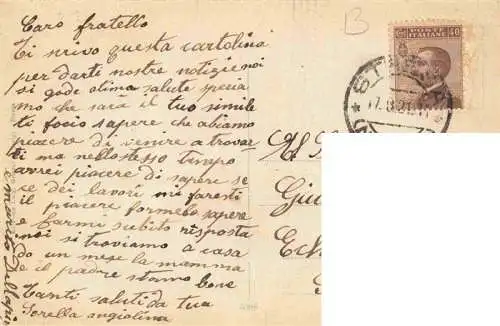 Caro fratello
Ti srivo questa cartolina
per darti nostre notizie noi
si gode otima salute speria
mo che sarà il tuo simile
ti focio sapere che abiamo
piacere di venire a trovar
ti ma nello stesso tempo
avrei piacere di sapere se
ce dei lavori mi faresti
il piacere formelo sapere
e farmi subito risposta
noi si troviamo a casa
do un mese la mamma
e il padre stamo bene
Tanti saluti da tua
Sorella angiolina
e marito
B
POSTE ITALIANE 40
17.8.21
Al
Giu